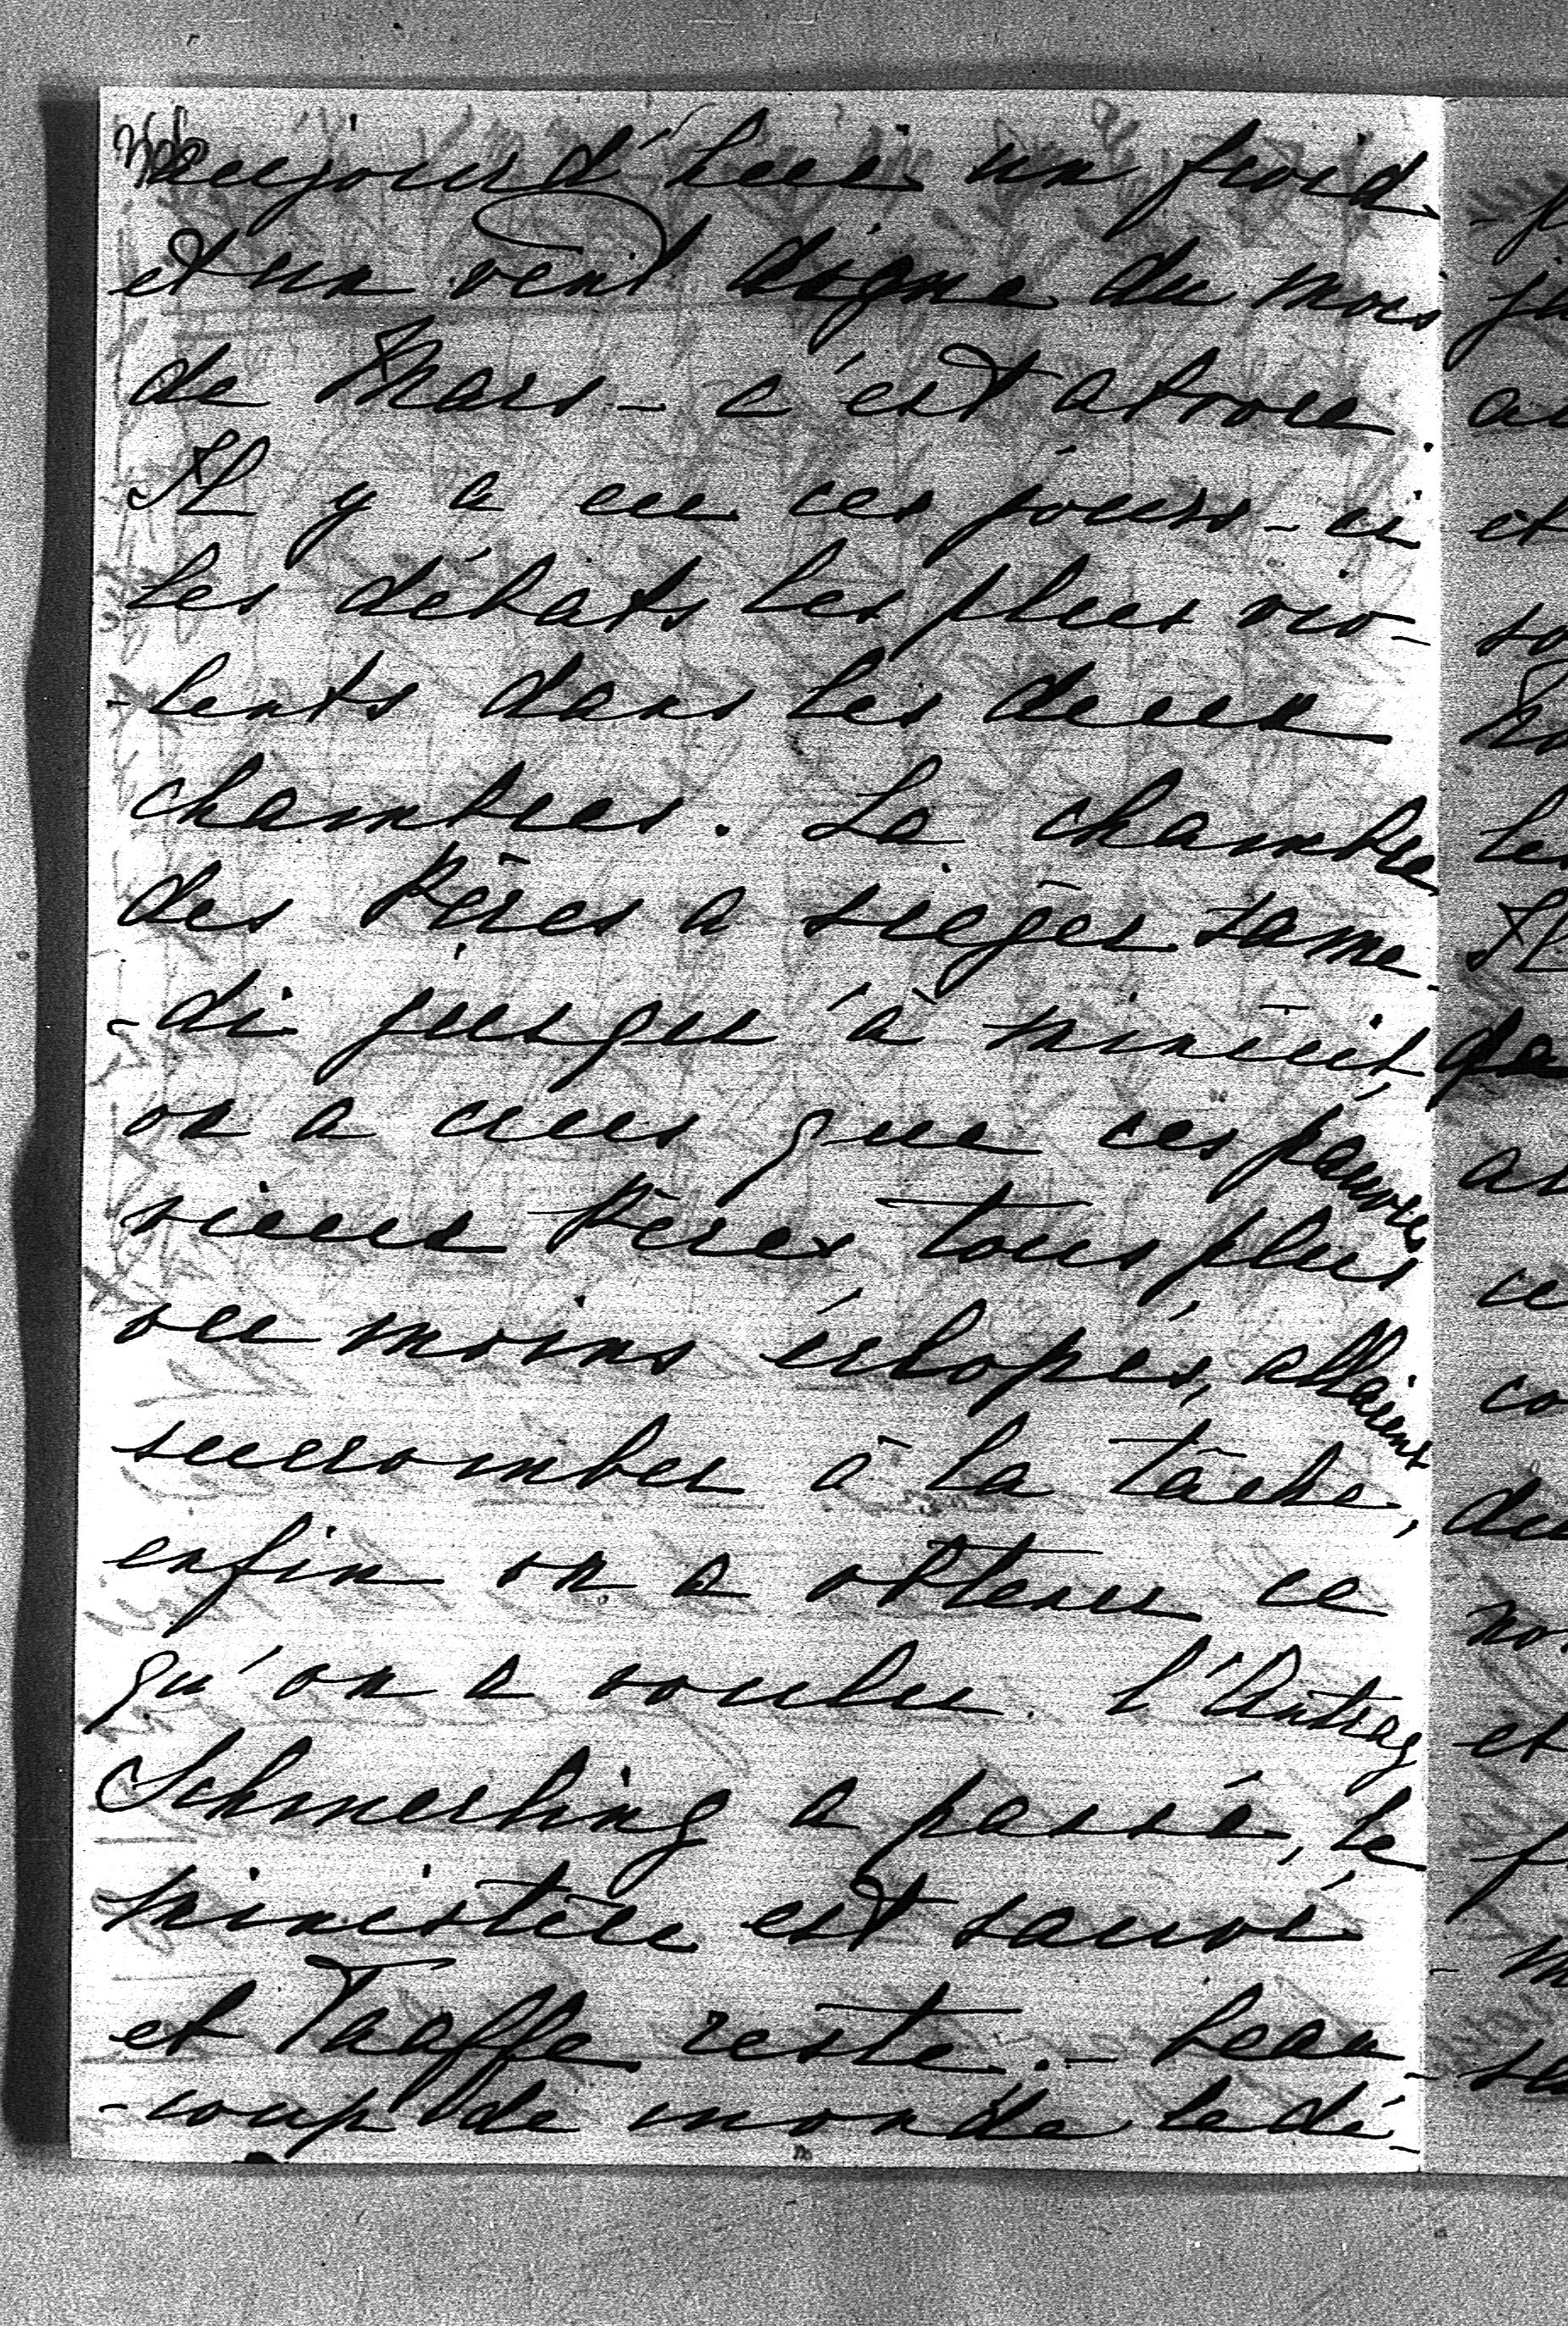 aujourd'hui un froid
et un vent digne du mois
de Mars - c'est atroce.
Il y a eu ces jours-ci
les débats les plus vio-
-lents dans les deux
chambres. La chambre
des Pères a sièger same-
-di jusque à minuit,
on a crus que ces pauvres
vieux Pères tous plus
ou moins éclopés, allaient
succomber à la tâche,
enfin on a obtenu ce
qu'on a voulu. l'Antrag
Schmerling a passé, le
ministère est sauvé
et Taaffe reste. - beau-
-coup de monde le dé-